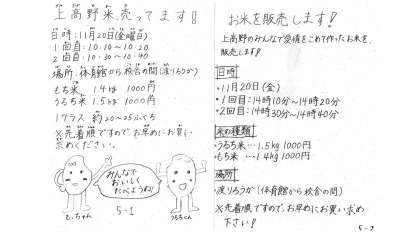 上高野米売ってます!
日時:11月20日(金曜日)
1回目:10:10~10:20
2回目:10:30~10:40
場所:体育館から校舎の間(渡りろうか)
もち米 1.4㎏ 1000円
うるち米 1.5㎏ 1000円
1クラス 約20~25ふくろ
※先着順ですので、お早めにお買い
求めください。
みんなで
おいしく
たべようね!
もっちゃん
5-1
うるちゃん
お米を販売します!
上高野のみんなで愛情をこめて作ったお米を、
販売します!
日時
・11月20日(金)
・1回目:14時10分~14時20分
・2回目:14時30分~14時40分
米の種類
・うるち米…1.5kg 1000円
・もち米 …1.4kg 1000円
場所
・渡りろうか(体育館から校舎の間)
※先着順ですので、お早めにお買い求め
下さい!
5-2